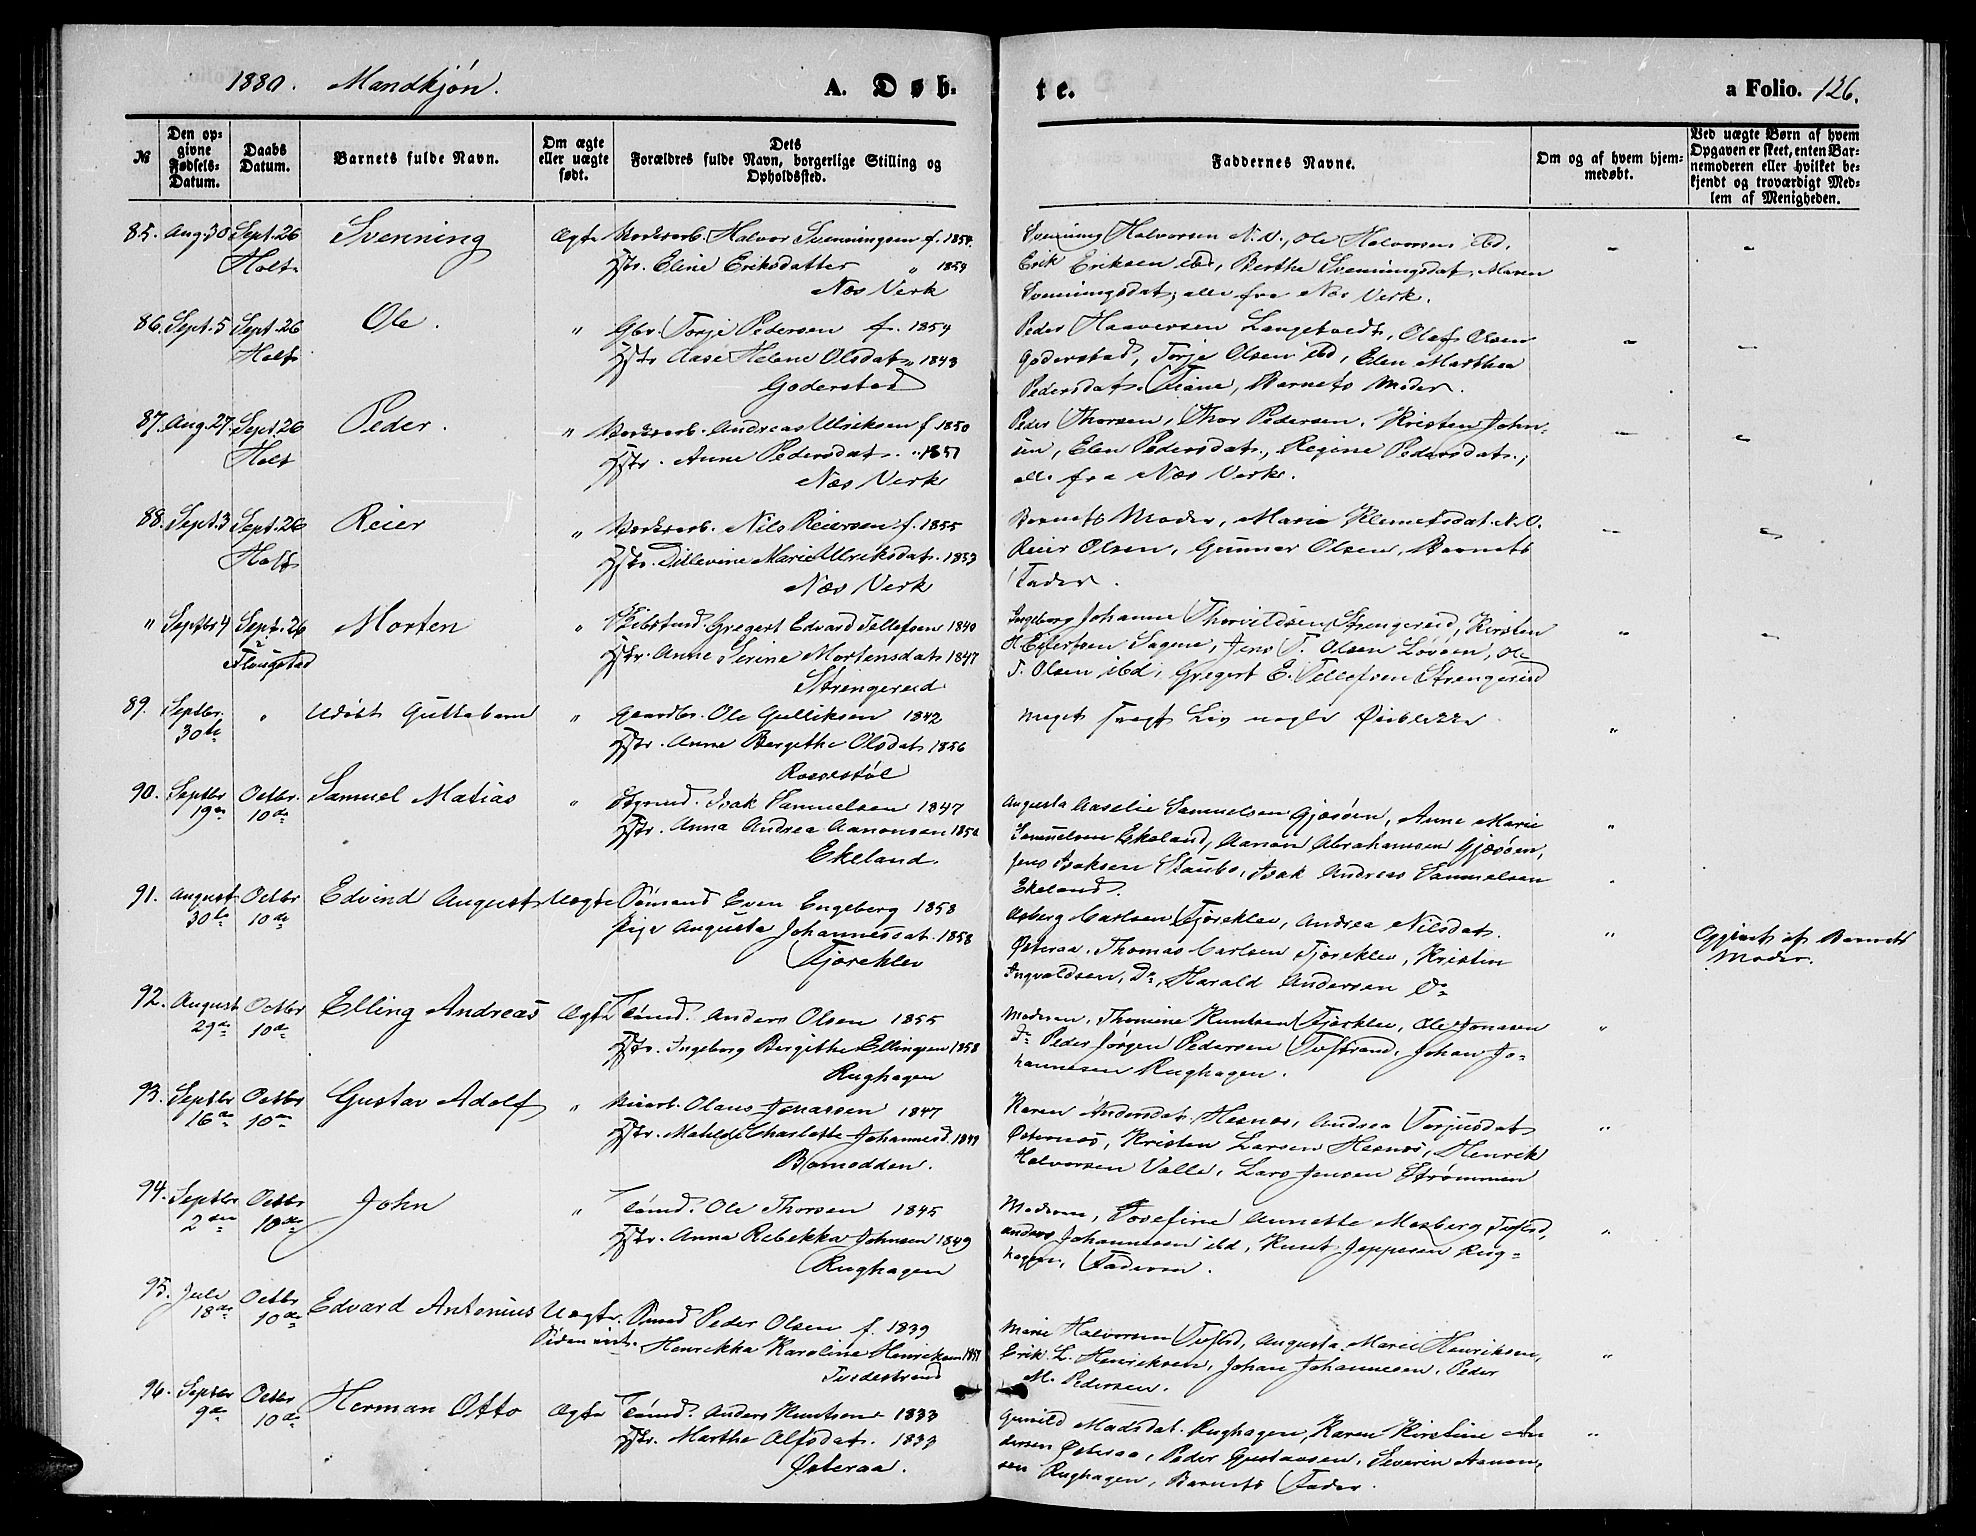 1880. Mandkjøn.
A. Døb-
te.
a Folio. 126.
№
Den op-
givne
Fødsels-
Datum.
Daabs
Datum.
Barnets fulde Navn.
Om ægte
eller uægte
født.
Dets
Forældres fulde Navn, borgerlige Stilling og
Opholdssted.
Faddernes Navne.
Om og af hvem hjem-
medøbt.
Ved uægte Børn af hvem
Opgaven er skeet, enten Bar-
nemoderen eller hvilket be-
kjendt og troværdigt Med-
lem af Menigheden.
85. Aug. 30 Sept. 26 Svenning Ægte Verksarb. Halvor Svenningsen f. 1854.
Holt Hstr. Eline Eriksdatter " 1859
Næs Verk
Svenning Halvorsen N.V., Ole Halvorsen ibd.
Erik Eriksen ibd, Berthe Svenningsdat, Maren
Svenningsdat, alle fra Næs Verk.
86. Sept. 5 Sept. 26 Ole. " Gbr. Torje Pedersen f. 1854
Holt Hstr. Aase Helene Olsdat. " 1843
Goderstad
Peder Haaversen Langetvedt, Olaf Olsen
Goderstad, Torje Olsen ibd, Elen Marthea
Pedersdat. Fiane, Barnets Moder.
87. Aug. 27 Sept. 26 Peder. " Verksarb. Andreas Ulriksen f 1850
Holt Hstr. Anne Pedersdat. " 1851
Næs Verk
Peder Thorsen, Thor Pedersen, Kristen John-
sen, Elen Pedersdat., Regine Pedersdat.,
alle fra Næs Verk.
88. Sept. 3 Sept. 26 Reier " Verksarb. Nils Reiersen f. 1855
Holt Hstr. Dillevine Marie Ulriksdat. 1853
Næs Verk
Barnets Moder, Marie Klemetsdat. N.V.
Reier Olsen, Gunnar Olsen, Barnets
Fader.
" Septbr 4 Sept. 26 Morten " Gregert Edvard Tellefsen 1840
Flougstad Hstr. Anne Serine Mortensdat 1847
Strengereid
Ingeborg Johanne Thorvildsen Strengereid, Kirsten
Sagene, Jens T. Olsen Løvøen, Ole
T. Olsen ibd, Gregert E. Tellefsen Strengereid
89. Septbr. " Udøbt Guttebarn " Gaardbr. Ole Gulliksen 1842
30te Hstr. Anne Bergithe Olsdat. 1856
Roesestøl
Meget svagt Liv nogle Øieblikke
90. Septbr Octbr. Samuel Matias " Isak Samuelsen 1847
19de 10de Hstr. Anna Andrea Aanonsen 1850
Ekeland.
Augusta Aaselie Samuelsen Gjesøen, Anne Marie
Samuelsen Ekeland, Aanon Abrahamsen Gjesøen,
Jens Isaksen Staubo, Isak Andreas Samuelsen
Ekeland.
91. August Octbr Edvind August Uægte Sømand Even Engeberg 1858
30te 10de Pige Augusta Johannesdat. 1858
Fjæreklev
Asberg Carlsen Fjæreklev, Andrea Nilsdat.
Østeraa, Thomas Carlsen Fjæreklev, Kristen
Ingvaldsen, Do, Harald Andersen Do
Opgivet af Barnets
Moder.
92. August Octbr Elling Andreas Ægte Tømd. Anders Olsen 1855
29de 10de Hstr. Ingeborg Bergithe Ellingsen 1858
Rughagen
Moderen, Thomine Knutsen Fjæreklev, Ole Jonasen
Do Peder Jørgen Pedersen Tvdstrand, Johan Jo-
hannesen Rughagen.
93. Septbr Octbr Gustav Adolf " Olaus Jonassen 1847
16de 10de Hstr. Matilde Charlotte Johannesd. 1849
Bomodden.
Karen Andersdat. Hesnes, Andrea Torjusdat
Østernes, Kristen Larsen Hesnes, Henrik
Halvorsen Valle, Lars Jensen Strømmen
94. Septbr Octbr John " Tømd. Ole Thorsen 1845
2den 10de Hstr. Anna Rebekka Johnsen 1849
Rughagen
Moderen, Josefine Annette Mosberg Tvdstd,
Anders Johannesen ibd, Knut Jeppesen Rug-
hagen, Faderen.
95. Juli Octbr Edvard Antonius Uægte. Sømd Peder Olsen f. 1839
18de 10de Siden viet. Henrikka Karoline Henriksen 1851
Tvedestrand
Marie Halvorsen Tvdstd, Augusta Marie Henriksen,
Erik L. Henriksen, Johan Johannesen, Peder
M. Pedersen.
96. Septbr Octbr Herman Otto Ægte Tømd. Anders Knutsen 1833
9de 10de Hstr. Marthe Alfsdat. 1833
Østeraa.
Gunild Madsdat. Rughagen, Karen Kirstine An-
dersen Østeraa, Peder Gustavsen, Severin Aanon-
sen Rughagen, Barnets Fader.